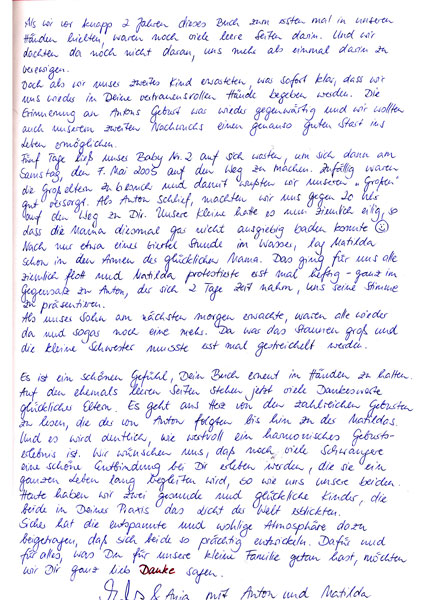 Als wir vor knapp 2 Jahren dieses Buch zum ersten mal in unseren
Händen hielten, waren noch viele leere Seiten darin. Und wir
dachten da noch nicht daran, uns mehr als einmal darin zu
verewigen.
Doch als wir unser zweites Kind erwarteten, war sofort klar, dass wir
uns wieder in Deine vertrauensvollen Hände begeben werden. Die
Erinnerung an Antons Geburt war wieder gegenwärtig und wir wollten
auch unserem zweiten Nachwuchs einen genauso guten Start ins
Leben ermöglichen.
Fünf Tage ließ unser Baby Nr. 2 auf sich warten, um sich dann am
Samstag, den 7. Mai 2005 auf den Weg zu machen. Zufällig waren
die Großeltern zu Besuch und damit wußten wir unseren "Großen"
gut versorgt. Als Anton schlief, machten wir uns gegen 20 Uhr
auf den Weg zu Dir. Unsere kleine hatte es nun ziemlich eilig, so
dass die Mama diesmal gar nicht ausgiebig baden konnte ☺
Nach nur etwa einer viertel Stunde im Wasser, lag Matilda
schon in den Armen der glücklichen Mama. Das ging für uns alle
ziemlich flott und Matilda protestierte erst mal heftig - ganz im
Gegensatz zu Anton, der sich 2 Tage Zeit nahm, uns seine Stimme
zu präsentieren.
Als unser Sohn am nächsten morgen erwachte, waren alle wieder
da und sogar noch eine mehr. Da war das Staunen groß und
die kleine Schwester musste erst mal gestreichelt werden.

Es ist ein schönes Gefühl, Dein Buch erneut in Händen zu halten.
Auf den ehemals leeren Seiten stehen jetzt viele Dankesworte
glücklicher Eltern. Es geht ans Herz von den zahlreichen Geburten
zu lesen, die der von Anton folgten bis hin zu der Matildas.
Und es wird deutlich, wie wertvoll ein harmonisches Geburts-
erlebnis ist. Wir wünschen uns, daß noch viele Schwangere
eine schöne Entbindung bei Dir erleben werden, die sie ein
ganzes Leben lang begleiten wird, so wie uns unsere beiden.
Heute haben wir zwei gesunde und glückliche Kinder, die
beide in Deiner Praxis das Licht der Welt erblickten.
Sicher hat die entspannte und wohlige Atmosphäre dazu
beigetragen, daß sich beide so prächtig entwickeln. Dafür und
für alles, was Du für unsere kleine Familie getan hast, möchten
wir Dir ganz lieb Danke sagen.
& Anja mit Anton und Matilda